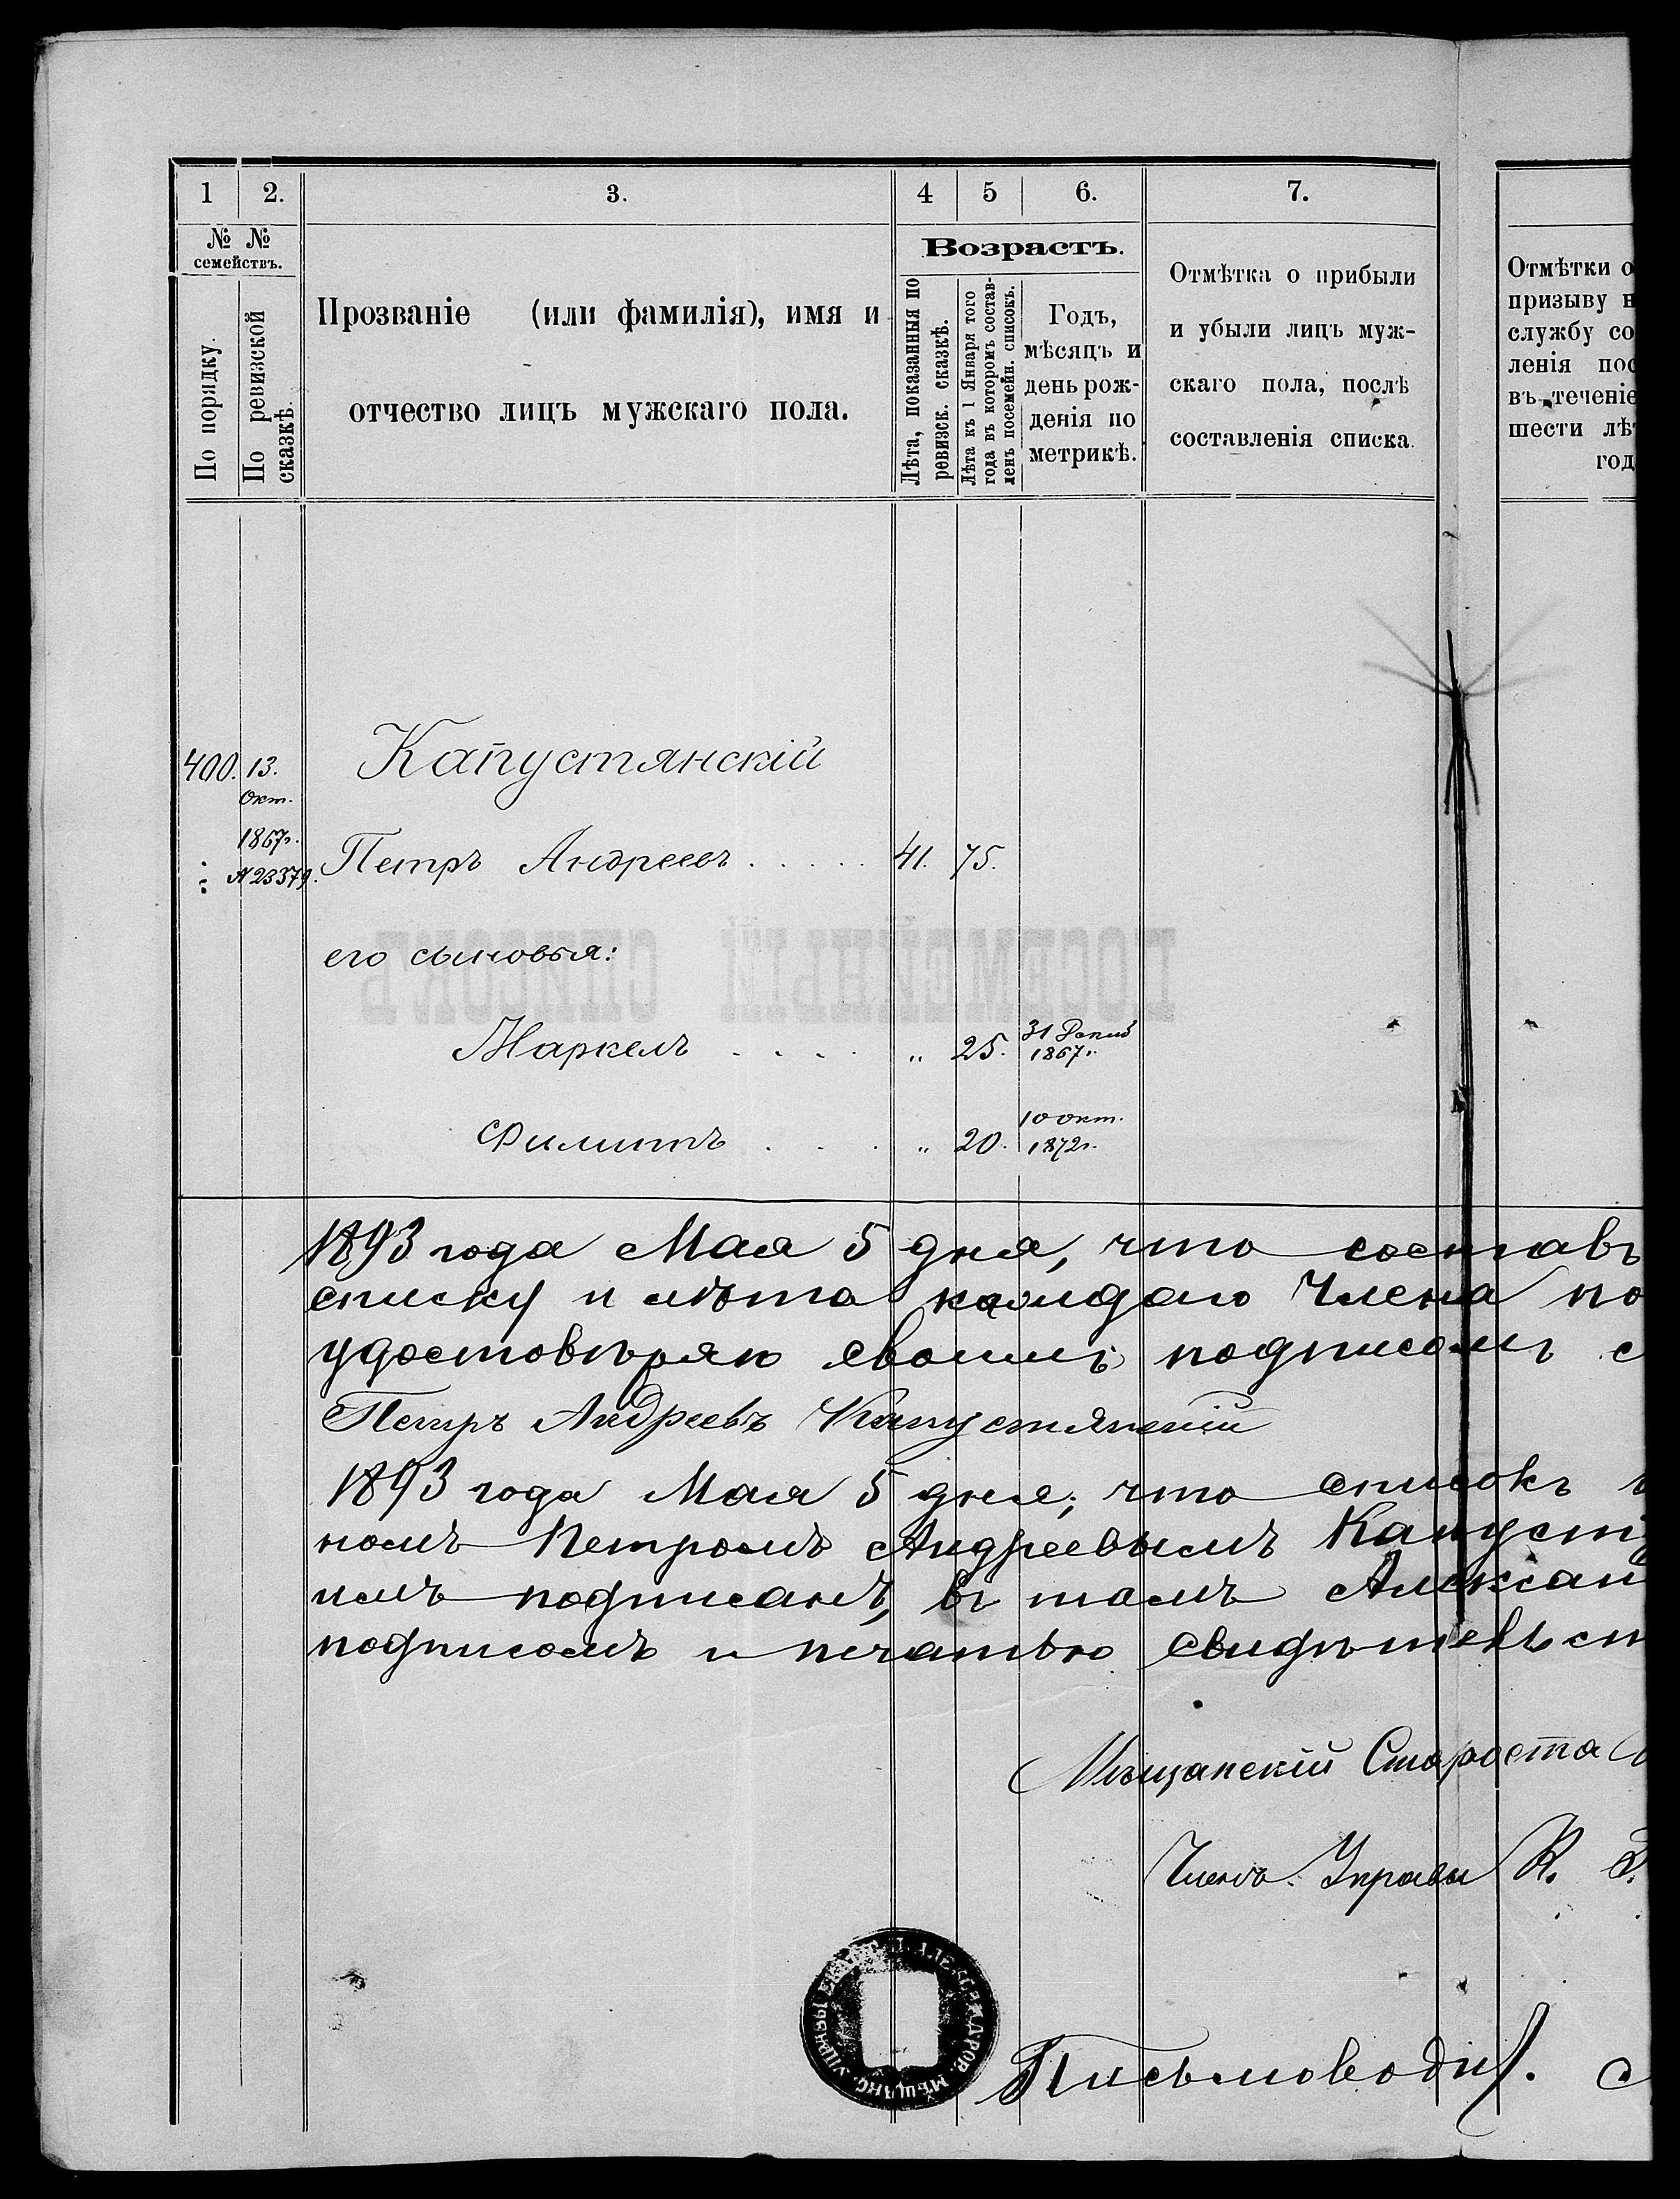 1 2. 3. 4 5 6. 7.
№ № семействъ.
По порядку.
По ревизской сказкѣ.
Прозваніе (или фамилія), имя и
отчество лицъ мужскаго пола.
Возрастъ.
Лѣта, показанныя по
ревизск. сказкѣ.
Лѣта къ 1 Января того
года въ которомъ состав-
ленъ посемейн. списокъ.
Годъ,
мѣсяцъ и
день рож-
денія по
метрикѣ.
Отмѣтка о прибыли
и убыли лицъ муж-
скаго пола, послѣ
составленія списка.
Отмѣтки о
призыву н
службу со
ленія пос
въ теченіе
шести лѣт
год
400. 13. Капустянскій
Окт.
1867г.
№ 23379. Петръ Андреевъ . . . . . 41. 75.
его сыновья:
ПОСЕМЕЙНЫЙ СПИСОКЪ
Маркелъ . . . . „ 25. 31
1867г.
Филиппъ . . . „ 20. 10 окт.
1872г.
1893 года Мая 5 дня, что составъ
списку и лѣта каждаго Члена по
удостовѣряю своимъ подписомъ с
Петръ Андреевъ Капустянскій
1893 года Мая 5 дня, что списокъ
номъ Петромъ Андреевымъ Капуст
имъ подписанъ, въ томъ Алексан
подписомъ и печатью свидѣтельст
Мѣщанскій Староста
Членъ Управы К.
Письмовод
МѢЩАНС. УПРАВЫ